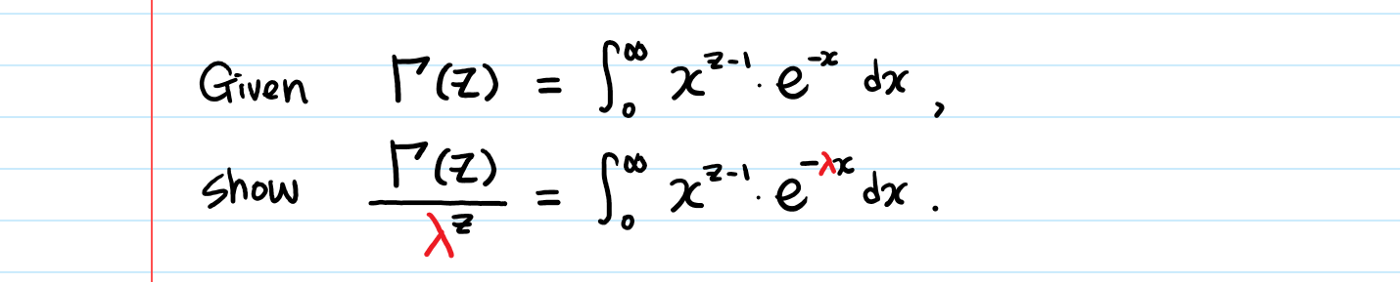 Given Γ(z) = ∫₀^∞ x^{z-1} · e^{-x} dx ,
show Γ(z)/λ^z = ∫₀^∞ x^{z-1} · e^{-λx} dx .